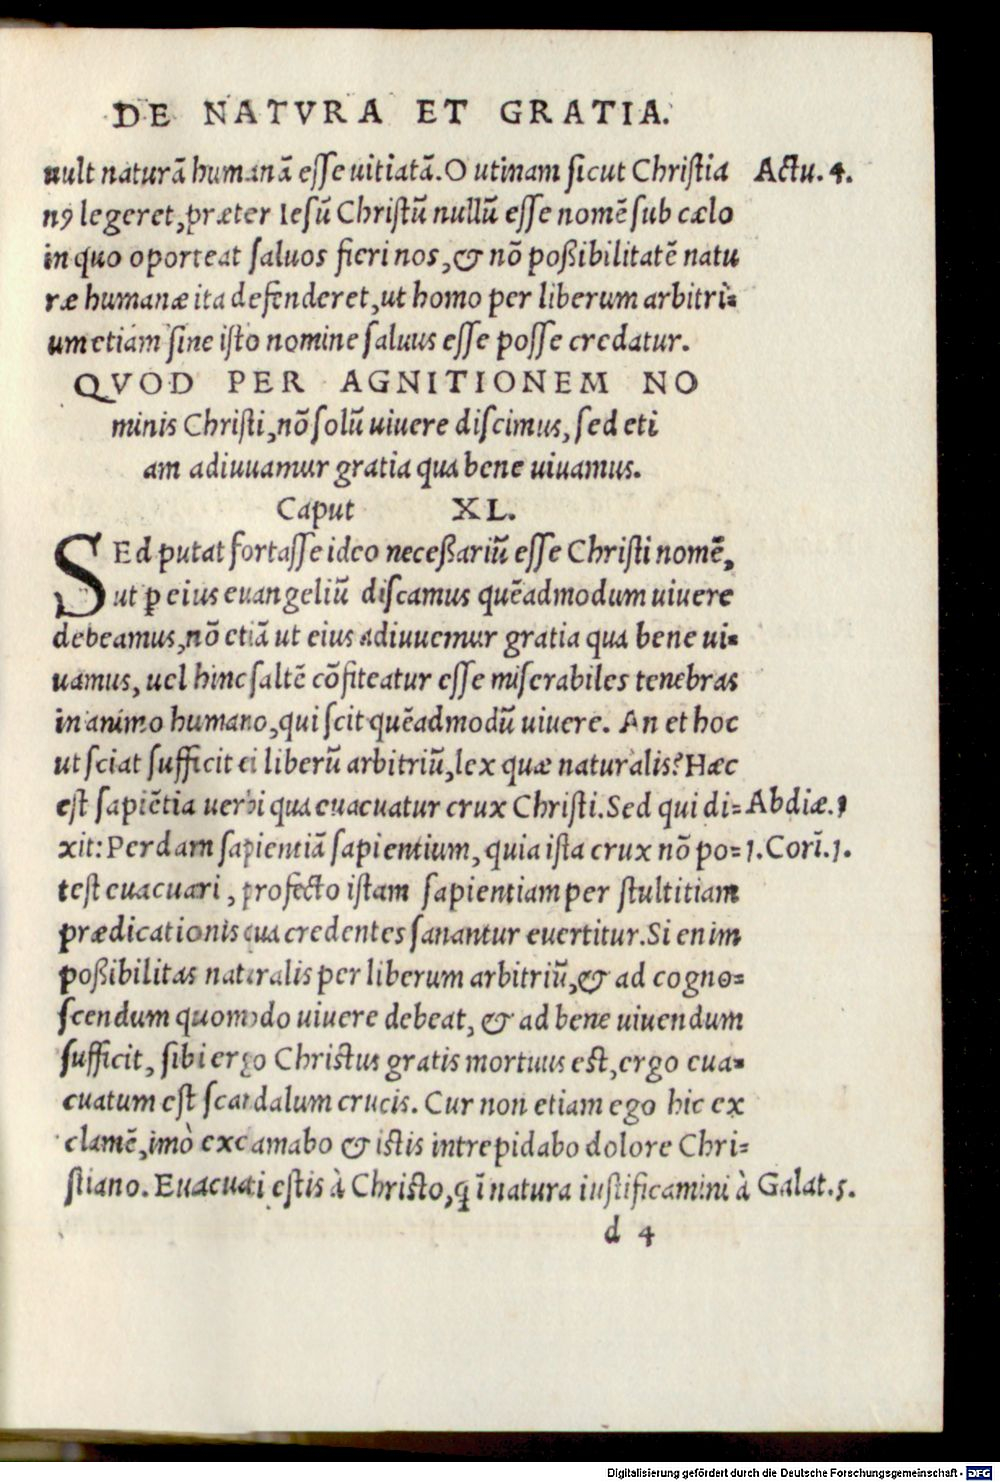 DE NATVRA ET GRATIA.
uult naturã humanã esse uitiatã. O utinam sicut Christia Actu. 4.
nꝰ legeret, præter Iesũ Christũ nullũ esse nomẽ sub cælo
in quo oporteat saluos fieri nos, & nõ poßibilitatẽ natu
ræ humanæ ita defenderet, ut homo per liberum arbitri=
um etiam sine isto nomine saluus esse posse credatur.
QVOD PER AGNITIONEM NO
minis Christi, nõ solũ uiuere discimus, sed eti
am adiuuamur gratia qua bene uiuamus.
Caput XL.
SEd putat fortasse ideo neceßariũ esse Christi nomẽ,
ut ꝑ eius euangeliũ discamus quẽadmodum uiuere
debeamus, nõ etiã ut eius adiuuemur gratia qua bene ui=
uamus, uel hinc saltẽ cõfiteatur esse miserabiles tenebras
in animo humano, qui scit quẽadmodũ uiuere. An et hoc
ut sciat sufficit ei liberũ arbitriũ, lex quæ naturalis? Hæc
est sapiẽtia uerbi qua euacuatur crux Christi. Sed qui di= Abdiæ. 1
xit: Perdam sapientiã sapientium, quia ista crux nõ po= 1. Corĩ. 1.
test euacuari, profecto istam sapientiam per stultitiam
prædicationis qua credentes sanantur euertitur. Si enim
poßibilitas naturalis per liberum arbitriũ, & ad cogno=
scendum quomodo uiuere debeat, & ad bene uiuendum
sufficit, sibi ergo Christus gratis mortuus est, ergo eua=
cuatum est scandalum crucis. Cur non etiam ego hic ex
clamẽ, imò exclamabo & istis intrepidabo dolore Chri=
stiano. Euacuati estis à Christo, q̃ ĩ natura iustificamini à Galat. 5.
d 4
Digitalisierung gefördert durch die Deutsche Forschungsgemeinschaft - DFG